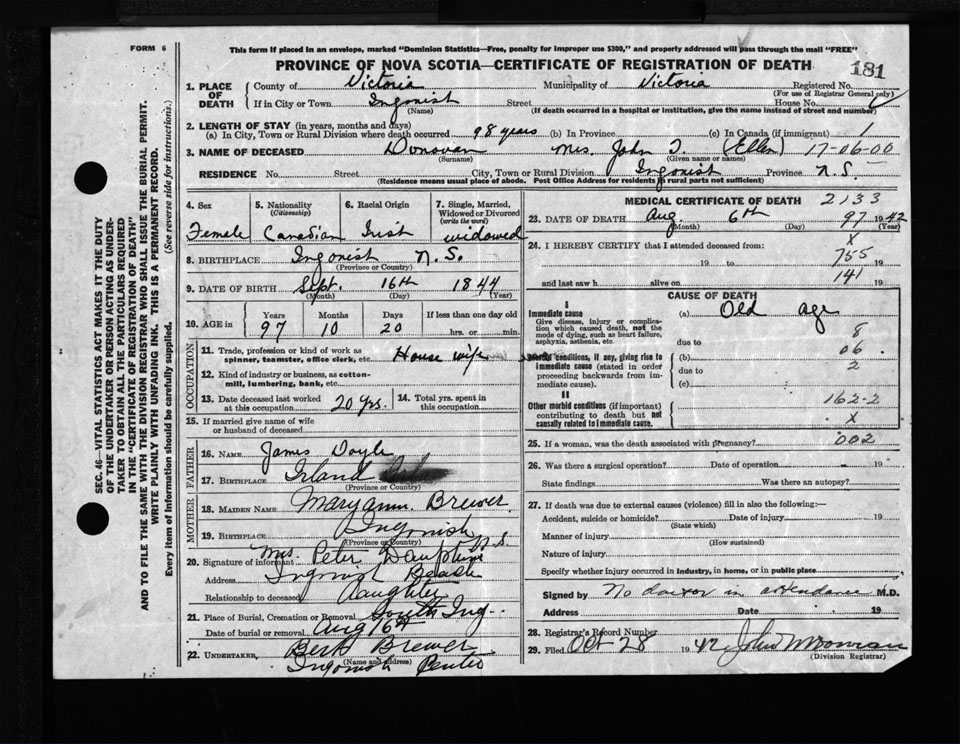 FORM 6
This form if placed in an envelope, marked "Dominion Statistics—Free, penalty for improper use $300," and properly addressed will pass through the mail "FREE"
PROVINCE OF NOVA SCOTIA—CERTIFICATE OF REGISTRATION OF DEATH
181
1. PLACE OF DEATH
County of Victoria Municipality of Victoria Registered No.
(For use of Registrar General only)
If in City or Town Ingonish Street House No.
(Name) (If death occurred in a hospital or institution, give the name instead of street and number)
2. LENGTH OF STAY (in years, months and days)
(a) In City, Town or Rural Division where death occurred 98 years (b) In Province (c) In Canada (if immigrant) 1
3. NAME OF DECEASED Donovan Mrs. John T. (Ellen) 17-06-00
(Surname) (Given name or names)
RESIDENCE No. Street City, Town or Rural Division Ingonish Province N.S.
(Residence means usual place of abode. Post Office Address for residents rural parts not sufficient)
4. Sex Female
5. Nationality (Citizenship) Canadian
6. Racial Origin Irish
7. Single, Married, Widowed or Divorced (write the word) widowed
8. BIRTHPLACE Ingonish N.S.
(Province or Country)
9. DATE OF BIRTH Sept. 16th 1844
(Month) (Day) (Year)
10. AGE in Years Months Days If less than one day old
97 10 20 hrs. or min.
OCCUPATION
11. Trade, profession or kind of work as spinner, teamster, office clerk, etc. House wife
12. Kind of industry or business, as cotton-mill, lumbering, bank, etc.
13. Date deceased last worked at this occupation 20 yrs.
14. Total yrs. spent in this occupation
15. If married give name of wife or husband of deceased
FATHER
16. NAME James Doyle
17. BIRTHPLACE Irland
(Province or Country)
MOTHER
18. MAIDEN NAME Maryann Brewer
19. BIRTHPLACE Ingonish N.S.
(Province or Country)
20. Signature of informant Mrs. Peter Dauphine
Address Ingonish Beach
Relationship to deceased daughter
21. Place of Burial, Cremation or Removal South Ing
Date of burial or removal Aug 16th
22. UNDERTAKER Bert Brewer
(Name and address)
Ingonish Centre
MEDICAL CERTIFICATE OF DEATH 2133
23. DATE OF DEATH Aug. 6th 97 1942
(Month) (Day) (Year)
24. I HEREBY CERTIFY that I attended deceased from: X
19 to 755 19
and last saw h alive on 141 19
CAUSE OF DEATH
I
Immediate cause
Give disease, injury or complication which caused death, not the mode of dying, such as heart failure, asphyxia, asthenia, etc.
(a) Old age
8
due to
06
Morbid conditions, if any, giving rise to immediate cause (stated in order proceeding backwards from immediate cause).
(b)
2
due to
(c)
II
Other morbid conditions (if important) contributing to death but not causally related to immediate cause.
162-2
X
25. If a woman, was the death associated with pregnancy? 002
26. Was there a surgical operation? Date of operation 19
State findings Was there an autopsy?
27. If death was due to external causes (violence) fill in also the following:—
Accident, suicide or homicide? Date of injury 19
(State which)
Manner of injury
(How sustained)
Nature of injury
Specify whether injury occurred in industry, in home, or in public place
Signed by No doctor in attendance M.D.
Address Date 19
28. Registrar's Record Number
29. Filed Oct 28 1942 John
(Division Registrar)
SEC. 46—VITAL STATISTICS ACT MAKES IT THE DUTY
OF THE UNDERTAKER OR PERSON ACTING AS UNDER-
TAKER TO OBTAIN ALL THE PARTICULARS REQUIRED
IN THE "CERTIFICATE OF REGISTRATION OF DEATH"
AND TO FILE THE SAME WITH THE DIVISION REGISTRAR WHO SHALL ISSUE THE BURIAL PERMIT.
WRITE PLAINLY WITH UNFADING INK. THIS IS A PERMANENT RECORD.
Every item of Information should be carefully supplied. (See reverse side for instructions.)